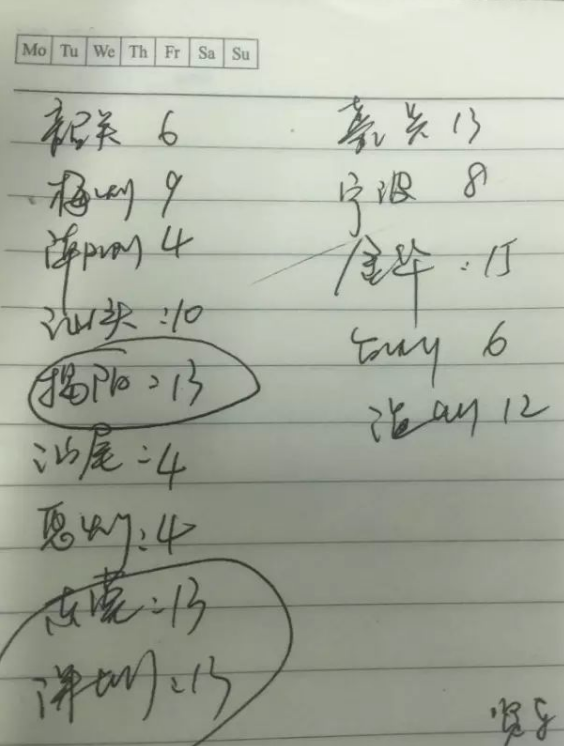 Mo Tu We Th Fr Sa Su
韶关 6
梅州 9
潮州 4
汕头:10
揭阳:13
汕尾:4
惠州:4
东莞:13
深圳:13
嘉兴 13
宁波 8
金华:15
台州 6
温州 12